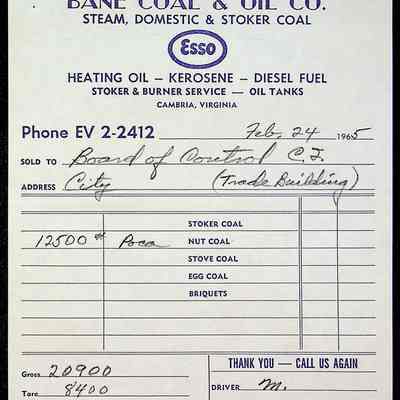 BANE COAL & OIL CO.
STEAM, DOMESTIC & STOKER COAL
Esso
HEATING OIL — KEROSENE — DIESEL FUEL
STOKER & BURNER SERVICE — OIL TANKS
CAMBRIA, VIRGINIA
Phone EV 2-2412 Feb. 24 1965
SOLD TO Board of Control C.I.
ADDRESS City (Trade Building)
STOKER COAL
12500 # Poca NUT COAL
STOVE COAL
EGG COAL
BRIQUETS
THANK YOU — CALL US AGAIN
Gross 20900
DRIVER M.
Tare 8400